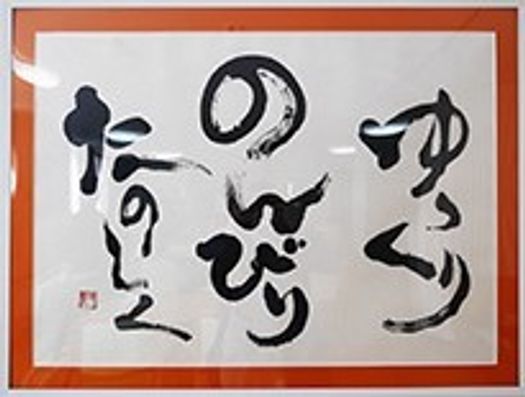 ゆっくり
のんびり
たのしく